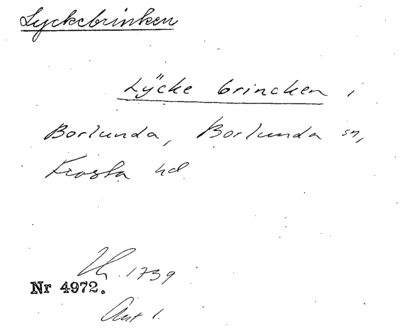 Lyckebrinken
Lÿcke brincken i
Borlunda, Borlunda sn,
Frosta hd
Lh. 1739
Nr 4972.
Akt 1.